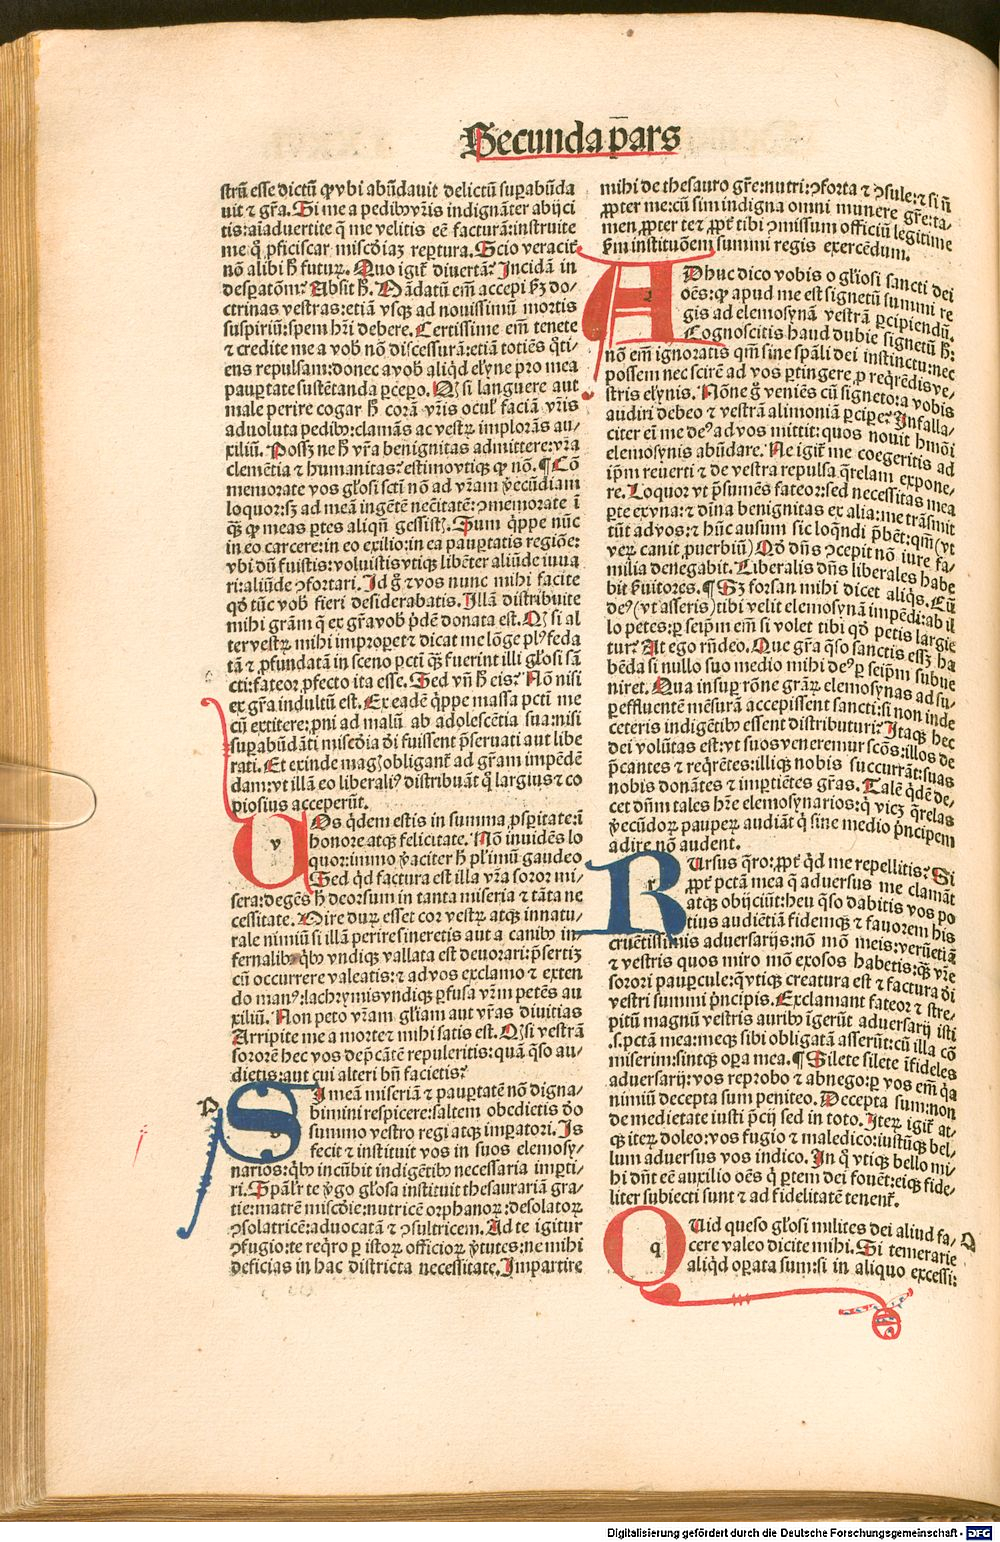 Secunda p̄ars
strū esse dictū ꝙ vbi abūdauit delictū suꝑabūda
uit ⁊ gr̄a. Si me a pedibꝰ vr̄is indignāter abijci
tis: aīaduertite q̄ me velitis eē facturā: instruite
me q̊ ꝓficiscar miscd̓iaꝫ reꝑtura. Scio veracit̓
nō alibi h̓ futuꝝ. Quo igit̓ diuertā? Incidā in
desꝑatōꝫ? Absit h̓. Mādatū em̄ accepi ẜꝫ do-
ctrinas vestras: etiā vsqꝫ ad nouissimū mortis
suspiriū: spem hr̄i debere. Certissime em̄ tenete
⁊ credite me a vob̓ nō discessurā: etiā totiēs q̊ti-
ens repulsam: donec a vob̓ aliq̊d el̓yne pro mea
pauꝑtate sustētanda ꝑceꝑo. Qꝫ si languere aut
male perire cogar h̓ corā vr̄is ocul̓ faciā vr̄is
aduoluta pedibꝰ: clamās ac vestꝝ implorās au-
xiliū. Possꝫ ne h̓ vr̄a benignitas admittere: vr̄a
clemētia ⁊ humanitas? estimo vtiqꝫ ꝙ nō. ¶ Cō
memorate vos gl̓osi sctī nō ad vr̄am v̓ecūdiam
loquor: sꝫ ad meā ingētē nec̄itatē: ꝯmemorate ī
q̄ꝫ ꝙ meas ꝑtes aliqn̄ gessistꝭ. Sum q̊ppe nūc
in eo carcere: in eo exilio: in ea pauꝑtatis regiōe:
vbi dū fuistis: voluistis vtiqꝫ libēter aliūde iuua
ri: aliūde ꝯfortari. Id g̊ ⁊ vos nunc mihi facite
qd̓ tūc vob̓ fieri desiderabatis. Illā distribuite
mihi grām q̄ ex gr̄a vob̓ p̓dē donata est. Qꝫ si al
ter vestꝝ mihi improꝑet ⁊ dicat me lōge plꝰ feda
tā ⁊ ꝓfundatā in sceno pctī q̄ꝫ fuerint illi gl̓osi sā
cti: fateor ꝓfecto ita esse. Sed vn̄ h̓ eis? Nō nisi
ex gr̄a indultū est. Ex eadē q̊ppe massa pctī me
cū extitere: ꝓni ad malū ab adolescētia sua: nisi
suꝑabūdāti miscd̓ia d̓i fuissent p̓seruati aut libe
rati. Et exinde magꝭ obligant̓ ad gr̄am impēdē
dam: vt illā eo liberaliꝰ distribuāt q̊ largius ⁊ co
piosius acceperūt.
VOs q̊dem estis in summa ꝓsꝑitate: ī
honore atqꝫ felicitate. Nō inuidēs lo
quor: immo v̓aciter h̓ pl̓imū gaudeo
Sed q̊d factura est illa vr̄a soror mi-
sera: degēs h̓ deorsum in tanta miseria ⁊ tāta ne
cessitate. Mire duꝝ esset cor vestꝝ atqꝫ innatu-
rale nimiū si illā perire sineretis aut a canibꝰ in-
fernalibꝰ q̊bꝰ vndiqꝫ vallata est deuorari: p̓sertiꝫ
cū occurrere valeatis: ⁊ ad vos exclamo ⁊ exten
do manꝰ: lachrymis vndiqꝫ ꝑfusa vr̄m petēs au
xiliū. Non peto vr̄am gl̓iam aut vr̄as diuitias
Arripite me a morte ⁊ mihi satis est. Qꝫ si vestrā
sororē hec vos dep̓cātē repuleritis: quā q̊so au-
dietis: aut cui alteri bn̄ facietis?
SI meā miseriā ⁊ pauꝑtatē nō digna-
bimini respicere: saltem obedictis d̓o
summo vestro regi atqꝫ imꝑatori. Is
fecit ⁊ instituit vos in suos elemosy-
narios: q̊bꝰ incūbit indigētibꝰ necessaria imꝑti-
ri. Spāl̓r te v̓go gl̓osa instituit thesaurariā gra-
tie: matrē miscd̓ie: nutricē orphanoꝝ: desolatoꝝ
ꝯsolatricē: aduocatā ⁊ ꝯsultricem. Ad te igitur
ꝯfugio: te req̊ro ꝑ istoꝝ officioꝝ v̓tutes: ne mihi
deficias in hac districta necessitate. Impartire
mihi de thesauro gr̄e: nutri: ꝯforta ⁊ ꝯsule: ⁊ si n̄
ꝓpter me: cū sim indigna omni munere gr̄e: ta-
men ꝓpter te ⁊ ꝓpt̓ tibi ꝯmissum officiū legitime
ẜm instituōem summi regis exercēdum.
ADhuc dico vobis o gl̓iosi sancti dei
oēs: ꝙ apud me est signetū summi re
gis ad elemosynā vestrā ꝑcipiendū.
Cognoscitis haud dubie signetū h̓:
nō em̄ ignoratis qm̄ sine sp̄ali dei instinctu: nec
possem nec scirē ad vos ꝑtingere ꝓ req̊rēdis ve-
stris el̓ynis. Nōne g̊ veniēs cū signeto: a vobis
audiri debeo ⁊ vestrā alimoniā ꝑciꝑe? Infalla-
citer eī me deꝰ ad vos mittit: quos nouit hmōi
elemosynis abūdare. Ne igit̓ me coegeritis ad
ip̄m reuerti ⁊ de vestra repulsa q̄relam expone-
re. Loquor vt p̓sumēs fateor: sed necessitas mea
ꝑte ex vna: ⁊ diīna benignitas ex alia: me trāsmit
tūt ad vos: ⁊ hūc ausum sic loq̄ndi p̓bēt: qm̄ (vt
veꝝ canit ꝓuerbiū) Qd̓ dn̄s ꝯcepit nō iure fa-
milia denegabit. Liberalis dn̄s liberales habe
bit ẜuitores. ¶ Sꝫ forsan mihi dicet aliq̊s. Cū
deꝰ (vt asseris) tibi velit elemosynā impēdi: ab il
lo petes: ꝑ seip̄m em̄ si volet tibi qd̓ petis largie
tur? At ego rn̄deo. Que gr̄a q̊so sanctis essꝫ ha
bēda si nullo suo medio mihi deꝰ ꝑ seip̄m subue
niret. Qua insuꝑ rōne grāꝝ elemosynas ad su-
ꝑeffluentē mēsurā accepissent sancti: si non inde
ceteris indigētibꝰ essent distributuri? Itaqꝫ hec
dei volūtas est: vt suos veneremur scōs: illos de
p̓cantes ⁊ req̊rētes: illiqꝫ nobis succurrāt: suas
nobis donātes ⁊ imꝑtiētes gr̄as. Talē q̊dē de-
cet dn̄m tales hr̄e elemosynarios: q̊ viceꝫ q̄relas
v̓ecūdoꝝ pauꝑeꝝ audiāt q̊ sine medio p̓ncipem
adire nō audent.
RUrsus q̄ro: ꝓpt̓ q̊d me repellitis? Si
ꝓpt̓ pctā mea q̄ aduersus me clamāt
atqꝫ obijciūt: heu q̊so dabitis vos po
tius audiētiā fidemqꝫ ⁊ fauorem his
cruētissimis aduersarijs: nō mō meis: veꝝetiā
⁊ vestris quos miro mō exosos habetis: q̄ꝫ vr̄e
sorori pauꝑcule: q̄ vtiqꝫ creatura est ⁊ factura d̓i
vestri summi p̓ncipis. Exclamant fateor ⁊ stre-
pitū magnū vestris auribꝰ īgerūt aduersarij isti
.s. pctā mea: meqꝫ sibi obligatā asserūt: cū illa cō
miserim: sintqꝫ oꝑa mea. ¶ Silete silete īfideles
aduersarij: vos reprobo ⁊ abnego: ꝑ vos em̄ q̊a
nimiū decepta sum peniteo. Decepta sum: non
de medietate iusti p̓cij sed in toto. Iteꝝ igit̓ at-
qꝫ iteꝝ doleo: vos fugio ⁊ maledico: iustūqꝫ bel-
lum aduersus vos indico. In q̊ vtiqꝫ bello mi-
hi dn̄t eē auxilio oēs q̊ ꝑtem dei fouēt: eiqꝫ fide-
liter subiecti sunt ⁊ ad fidelitatē tenent̓.
QUid queso gl̓osi milites dei aliud fa-
cere valeo dicite mihi. Si temerarie
aliq̊d oꝑata sum: si in aliquo excessi:
Digitalisierung gefördert durch die Deutsche Forschungsgemeinschaft - DFG